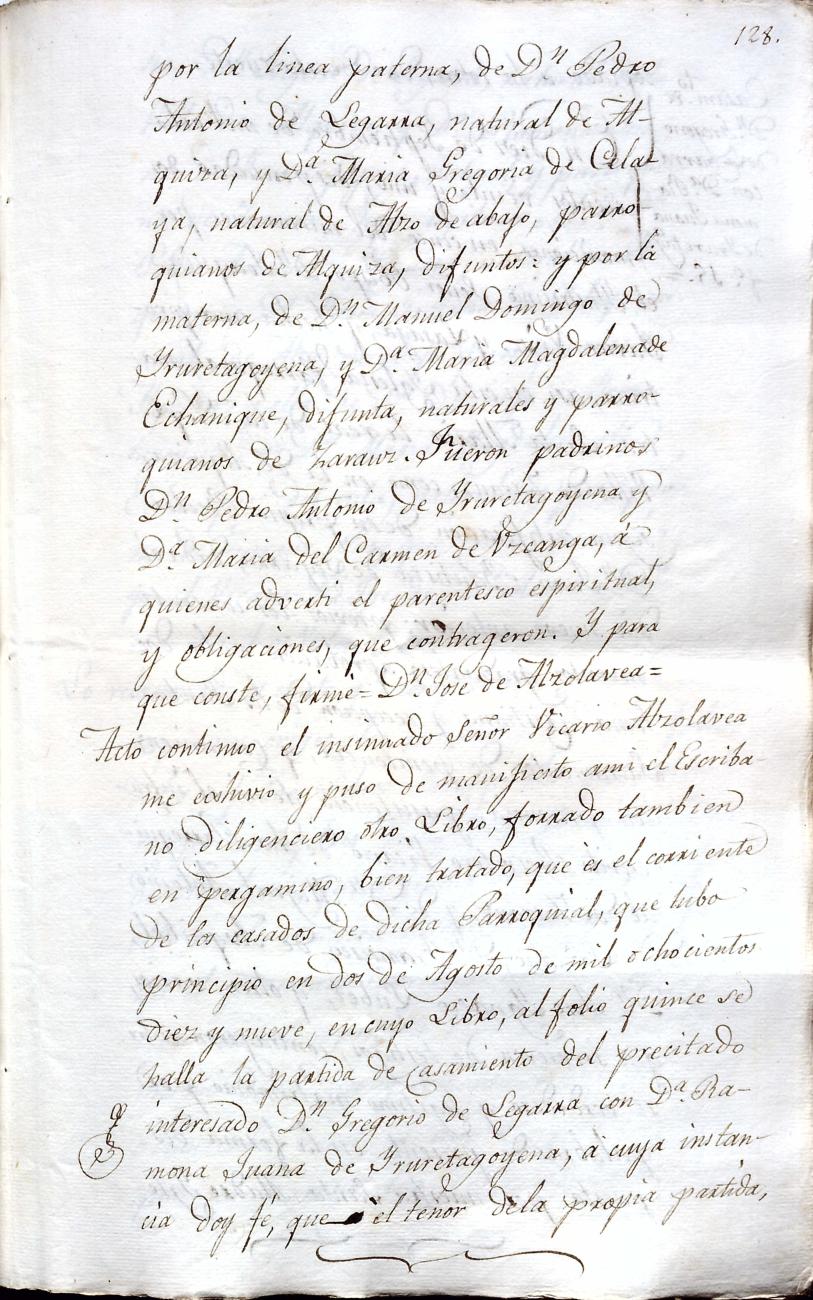 128.
por la linea paterna, de Dn Pedro
Antonio de Legarra, natural de Al-
quiza, y Da. Maria Gregoria de Celai-
ya, natural de Alzo de abajo, parro-
quianos de Alquiza, difuntos: y por la
materna, de Dn. Manuel Domingo de
Yruretagoyena, y Da. Maria Magdalena de
Echanique, difunta, naturales y parro-
quianos de Zarauz. Fueron padrinos
Dn. Pedro Antonio de Yruretagoyena y
Da. Maria del Carmen de Vzcanga, á
quienes adverti el parentesco espiritual,
y obligaciones, que contrageron. Y para
que conste, firmé= Dn. Jose de Alzolavea=
Acto continuo el insinuado Señor Vicario Alzolavea
me exhivio y puso de manifiesto ami el Escriba-
no diligenciero otro Libro, forrado tambien
en pergamino, bien tratado, que es el corriente
de los casados de dicha Parroquial, que tubo
principio en dos de Agosto de mil ochocientos
diez y nueve, en cuyo Libro, al folio quince se
halla la partida de casamiento del precitado
interesado Dn. Gregorio de Legarra con Da. Ra-
mona Juana de Yruretagoyena, á cuya instan-
cia doy fé, que el tenor dela propia partida,